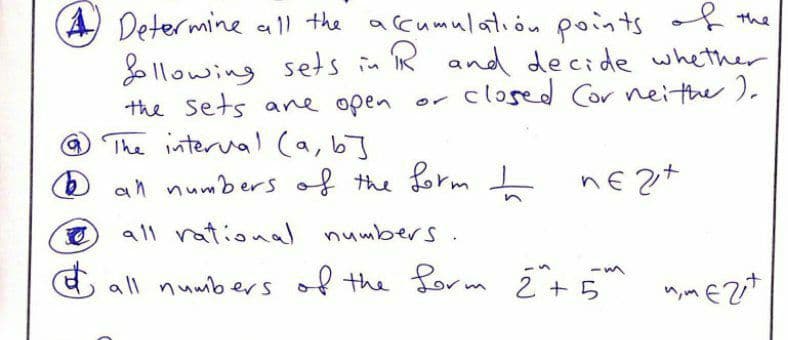 A Determine all the accumulation points of the
following sets in ℝ and decide whether
the sets are open or closed (or neither).
a The interval (a, b]
b all numbers of the form 1/n n ∈ ℤ⁺
c all rational numbers.
d all numbers of the form 2⁻ⁿ + 5⁻ᵐ n,m ∈ ℤ⁺